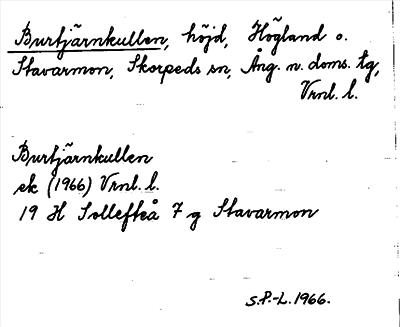 Burtjärnkullen, höjd, Högland o.
Stavarmon, Skorpeds sn, Ång. n. doms. tg,
Vrnl. l.
Burtjärnkullen
ek (1966) Vrnl. l.
19 H Sollefteå 7 g Stavarmon
S.P.-L. 1966.